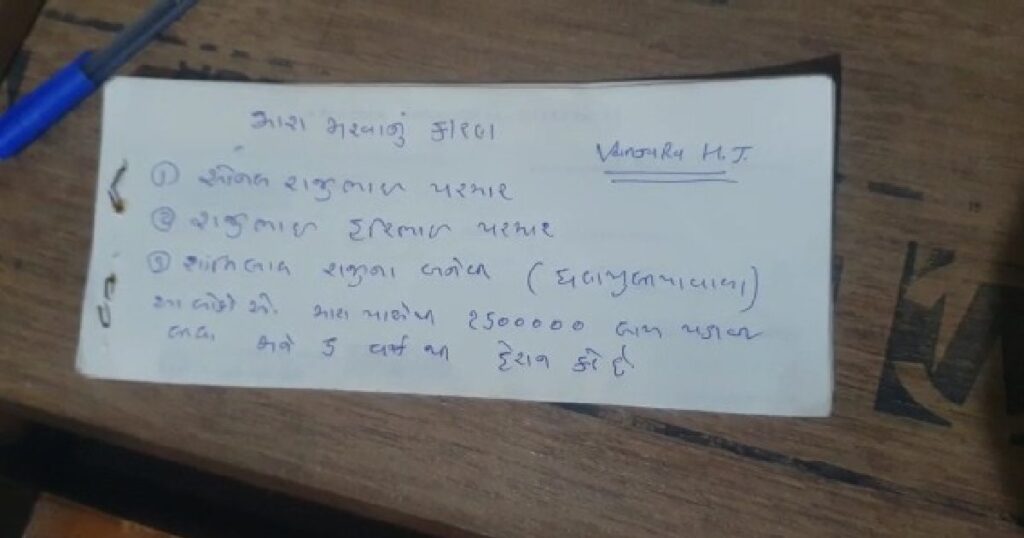 મારા મરવાનું કારણ
Vanjara H.J.
① રાજુભાઇ પરમાર
② રાજુભાઇ હરિભાઇ પરમાર
③ શાંતિલાલ રાજુના બનેવી
આ લોકો એ મારા પાસેથી 2500000 લાખ પડાવી
લીધા મને 5 વર્ષ થી હેરાન કરે છે